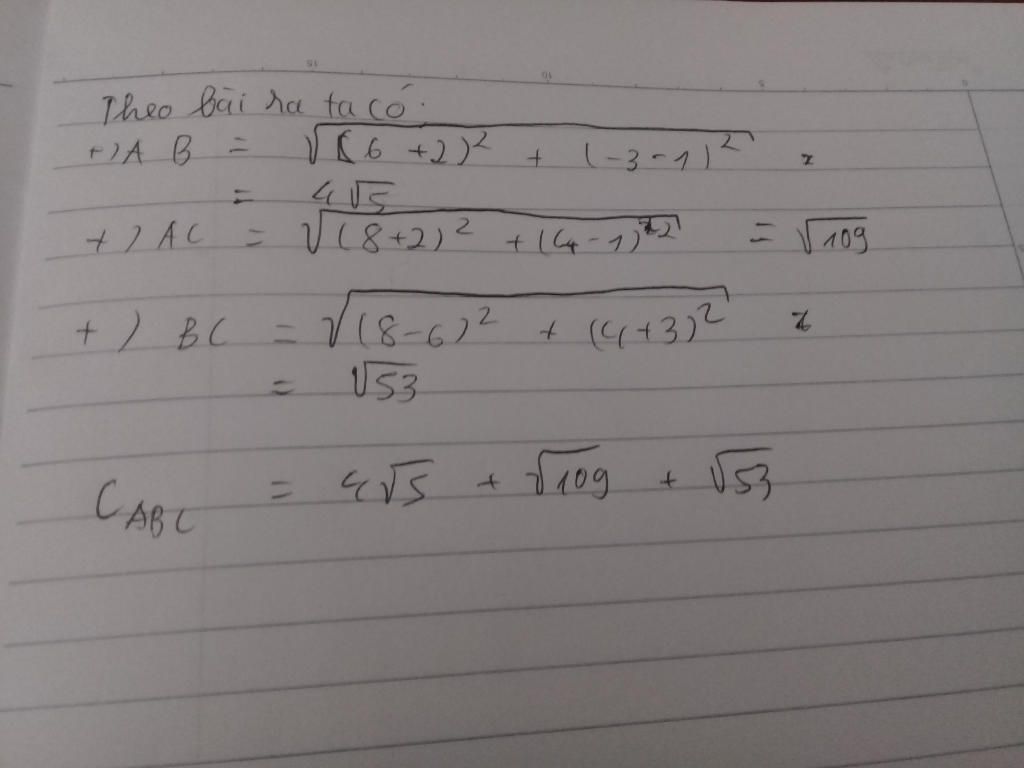 Theo bài ra ta có.
+) A B = √((6 +2)² + (-3-1)²)
= 4√5
+) AC = √((8+2)² + (4-1)²) = √109
+) BC = √((8-6)² + (4+3)²)
= √53
C_ABC = 4√5 + √109 + √53